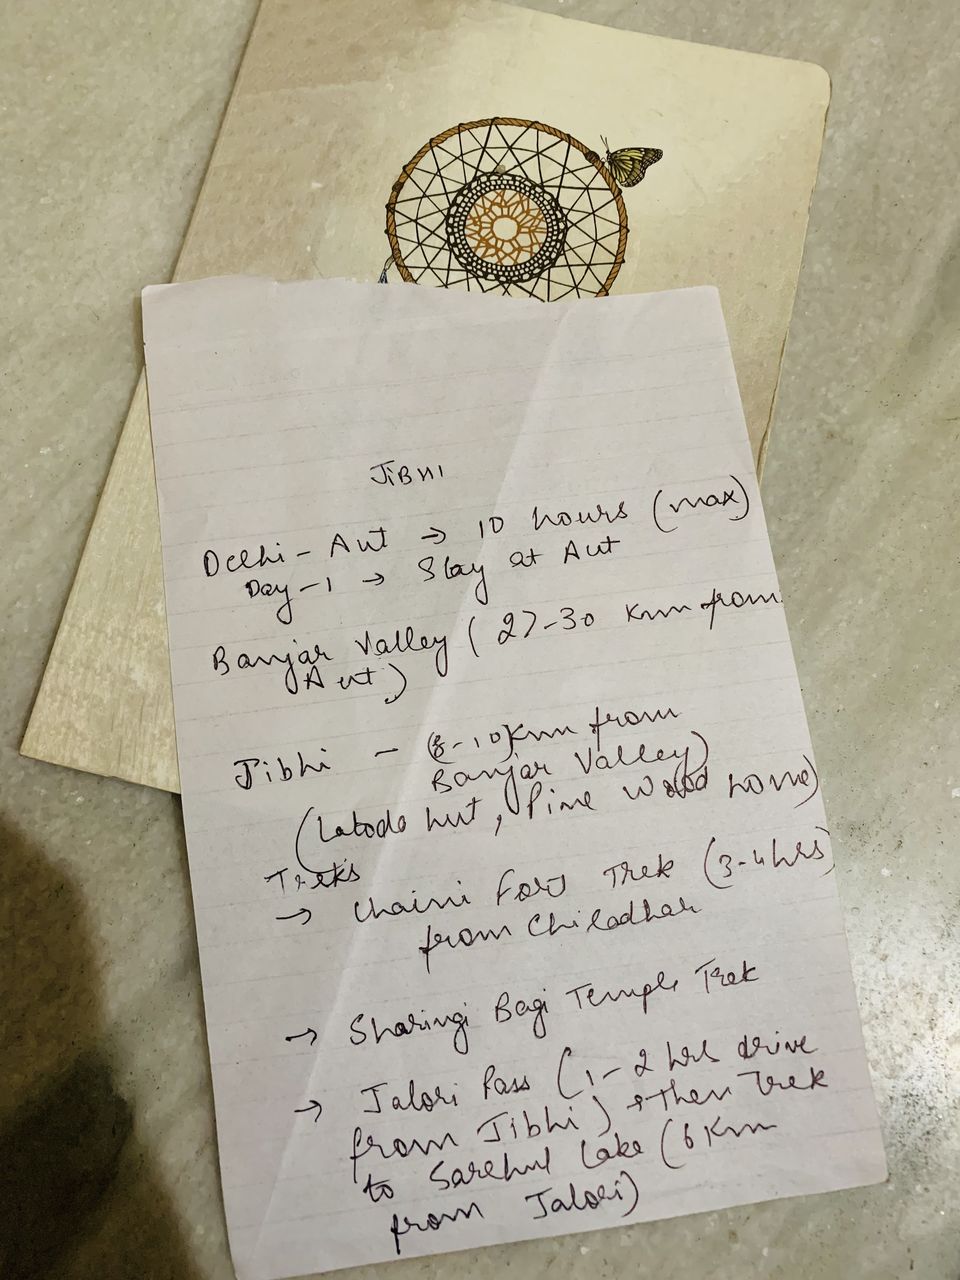 JiBHI
Delhi - Aut → 10 hours (max)
Day-1 → Stay at Aut
Banjar Valley (27-30 Km from
Aut)
Jibhi - (8-10) Km from
Banjar Valley)
(Latoda hut, Pine Wood home)
Treks
→ Chaini Fort Trek (3-4 hrs)
from Chiladhar
→ Sharingi Bagi Temple Trek
→ Jalori Pass (1-2 hrs drive
from Jibhi) & then Trek
to Sareyul Lake (6 Km
from Jalori)